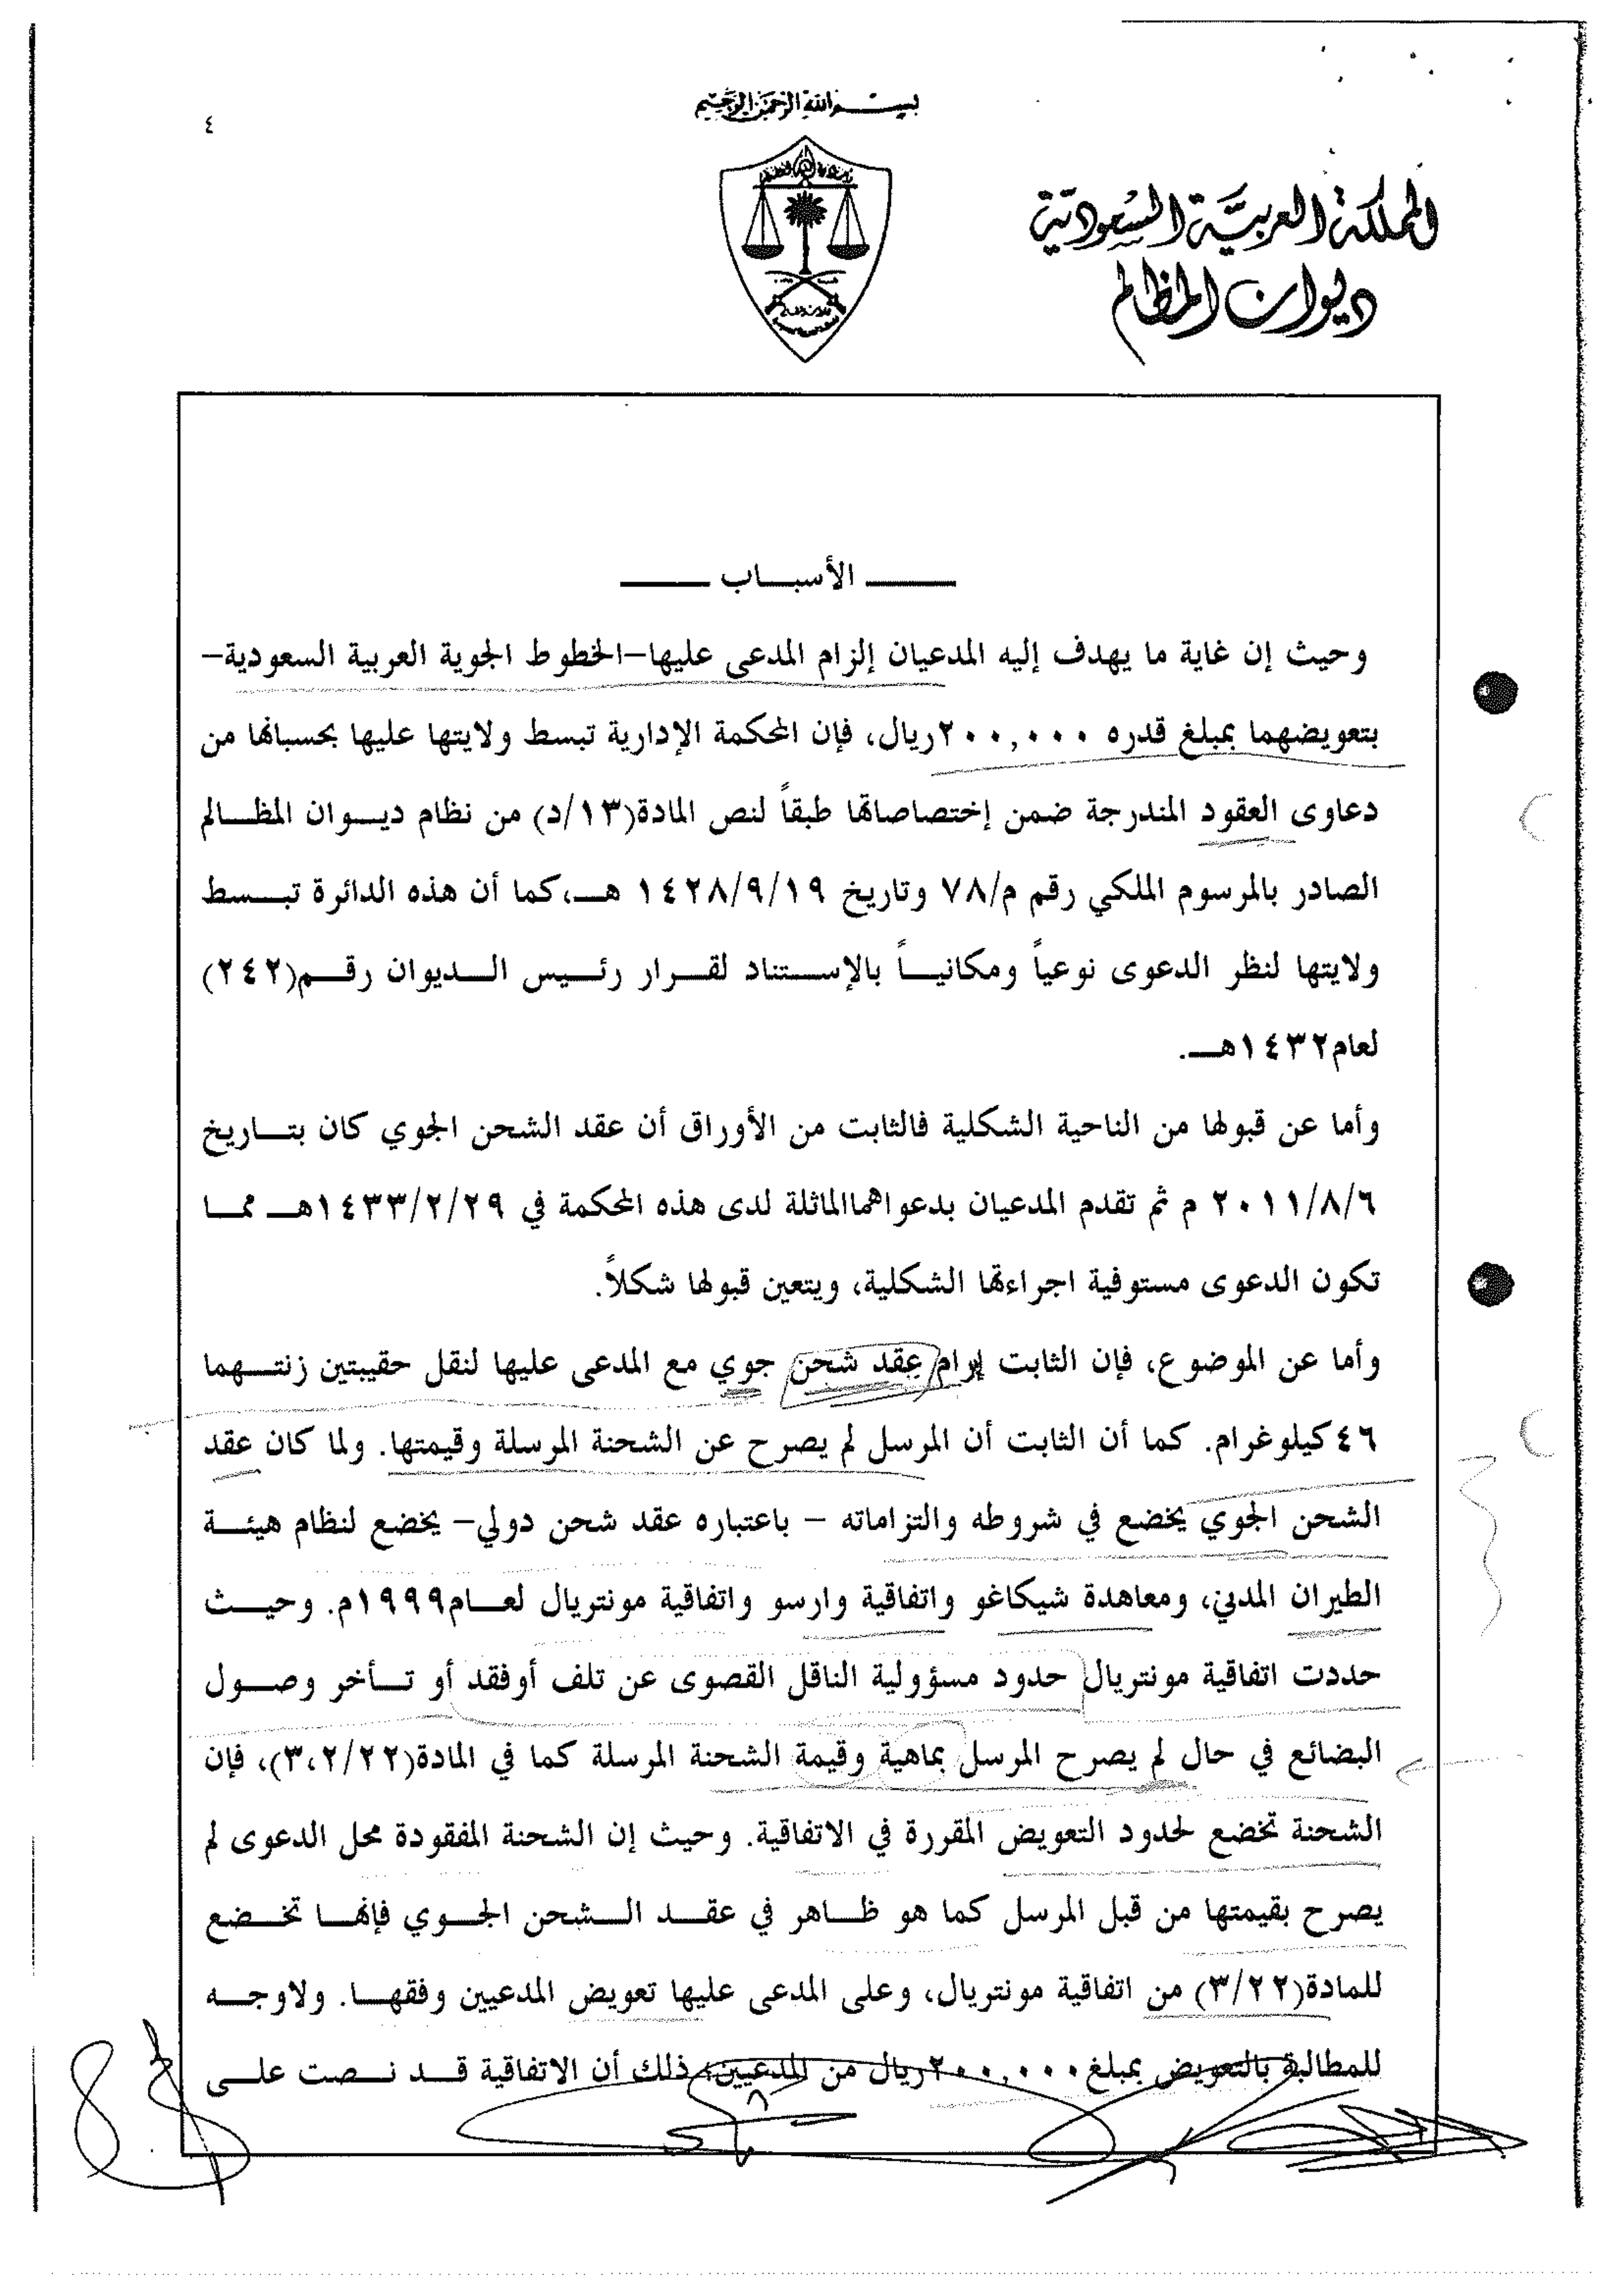 بسم الله الرحمن الرحيم
٤
المملكة العربية السعودية
ديوان المظالم
الأسباب
وحيث إن غاية ما يهدف إليه المدعيان إلزام المدعى عليها–الخطوط الجوية العربية السعودية–
بتعويضهما بمبلغ قدره ٢٠٠,٠٠٠ريال، فإن المحكمة الإدارية تبسط ولايتها عليها بحسبانها من
دعاوى العقود المندرجة ضمن إختصاصاتها طبقاً لنص المادة(١٣/د) من نظام ديوان المظالم
الصادر بالمرسوم الملكي رقم م/٧٨ وتاريخ ١٤٢٨/٩/١٩ هـ،كما أن هذه الدائرة تبسط
ولايتها لنظر الدعوى نوعياً ومكانياً بالإستناد لقرار رئيس الديوان رقم(٢٤٢)
لعام١٤٣٢هـ.
وأما عن قبولها من الناحية الشكلية فالثابت من الأوراق أن عقد الشحن الجوي كان بتاريخ
٢٠١١/٨/٦ م ثم تقدم المدعيان بدعواهماالماثلة لدى هذه المحكمة في ١٤٣٣/٢/٢٩هـ مما
تكون الدعوى مستوفية اجراءتها الشكلية، ويتعين قبولها شكلاً.
وأما عن الموضوع، فإن الثابت إبرام عقد شحن جوي مع المدعى عليها لنقل حقيبتين زنتهما
٤٦كيلوغرام. كما أن الثابت أن المرسل لم يصرح عن الشحنة المرسلة وقيمتها. ولما كان عقد
الشحن الجوي يخضع في شروطه والتزاماته – باعتباره عقد شحن دولي– يخضع لنظام هيئة
الطيران المدني، ومعاهدة شيكاغو واتفاقية وارسو واتفاقية مونتريال لعام١٩٩٩م. وحيث
حددت اتفاقية مونتريال حدود مسؤولية الناقل القصوى عن تلف أوفقد أو تأخر وصول
البضائع في حال لم يصرح المرسل بماهية وقيمة الشحنة المرسلة كما في المادة(٣،٢/٢٢)، فإن
الشحنة تخضع لحدود التعويض المقررة في الاتفاقية. وحيث إن الشحنة المفقودة محل الدعوى لم
يصرح بقيمتها من قبل المرسل كما هو ظاهر في عقد الشحن الجوي فإنها تخضع
للمادة(٣/٢٢) من اتفاقية مونتريال، وعلى المدعى عليها تعويض المدعيين وفقها. ولاوجه
للمطالبة بالتعويض بمبلغ٢٠٠,٠٠٠ريال من المدعيين؛ ذلك أن الاتفاقية قد نصت على